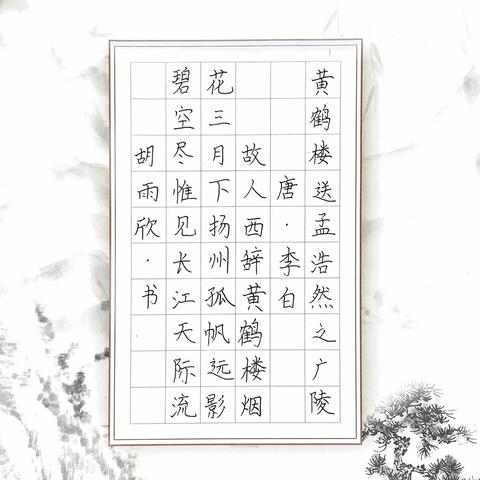 黄鹤楼送孟浩然之广陵
唐·李白
故人西辞黄鹤楼烟
花三月下扬州孤帆远影
碧空尽惟见长江天际流
胡雨欣·书